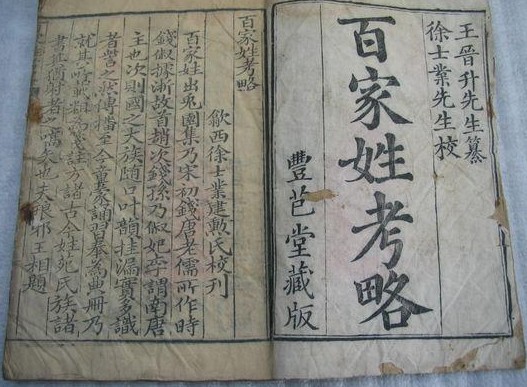 王晉升先生纂
徐士業先生校
百家姓考略
豐芑堂藏版
百家姓考略
歙西徐士業建勳氏校刊
百家姓出兎園集乃宋初錢唐老儒所作時
錢俶據浙故首趙次錢孫乃俶妃李謂南唐
主也次則國之大族隨口叶韻挂漏實多識
者訾之然傳播至今童蒙誦習奉為典冊乃
就其
註方諸古今姓苑氏族諸
書
射者
也夫琅邪王相題